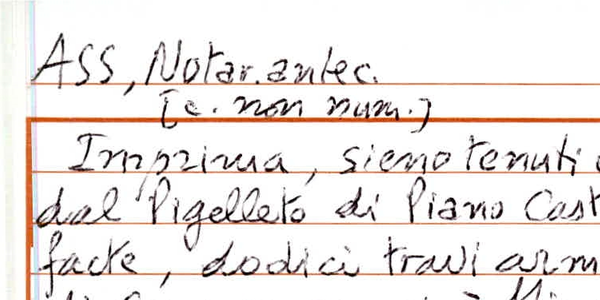 ASS, Notar. antec.
[c. non num.]
Imprima, sieno tenuti
dal Pigelleto di Piano Cast
facte, dodici travi arm